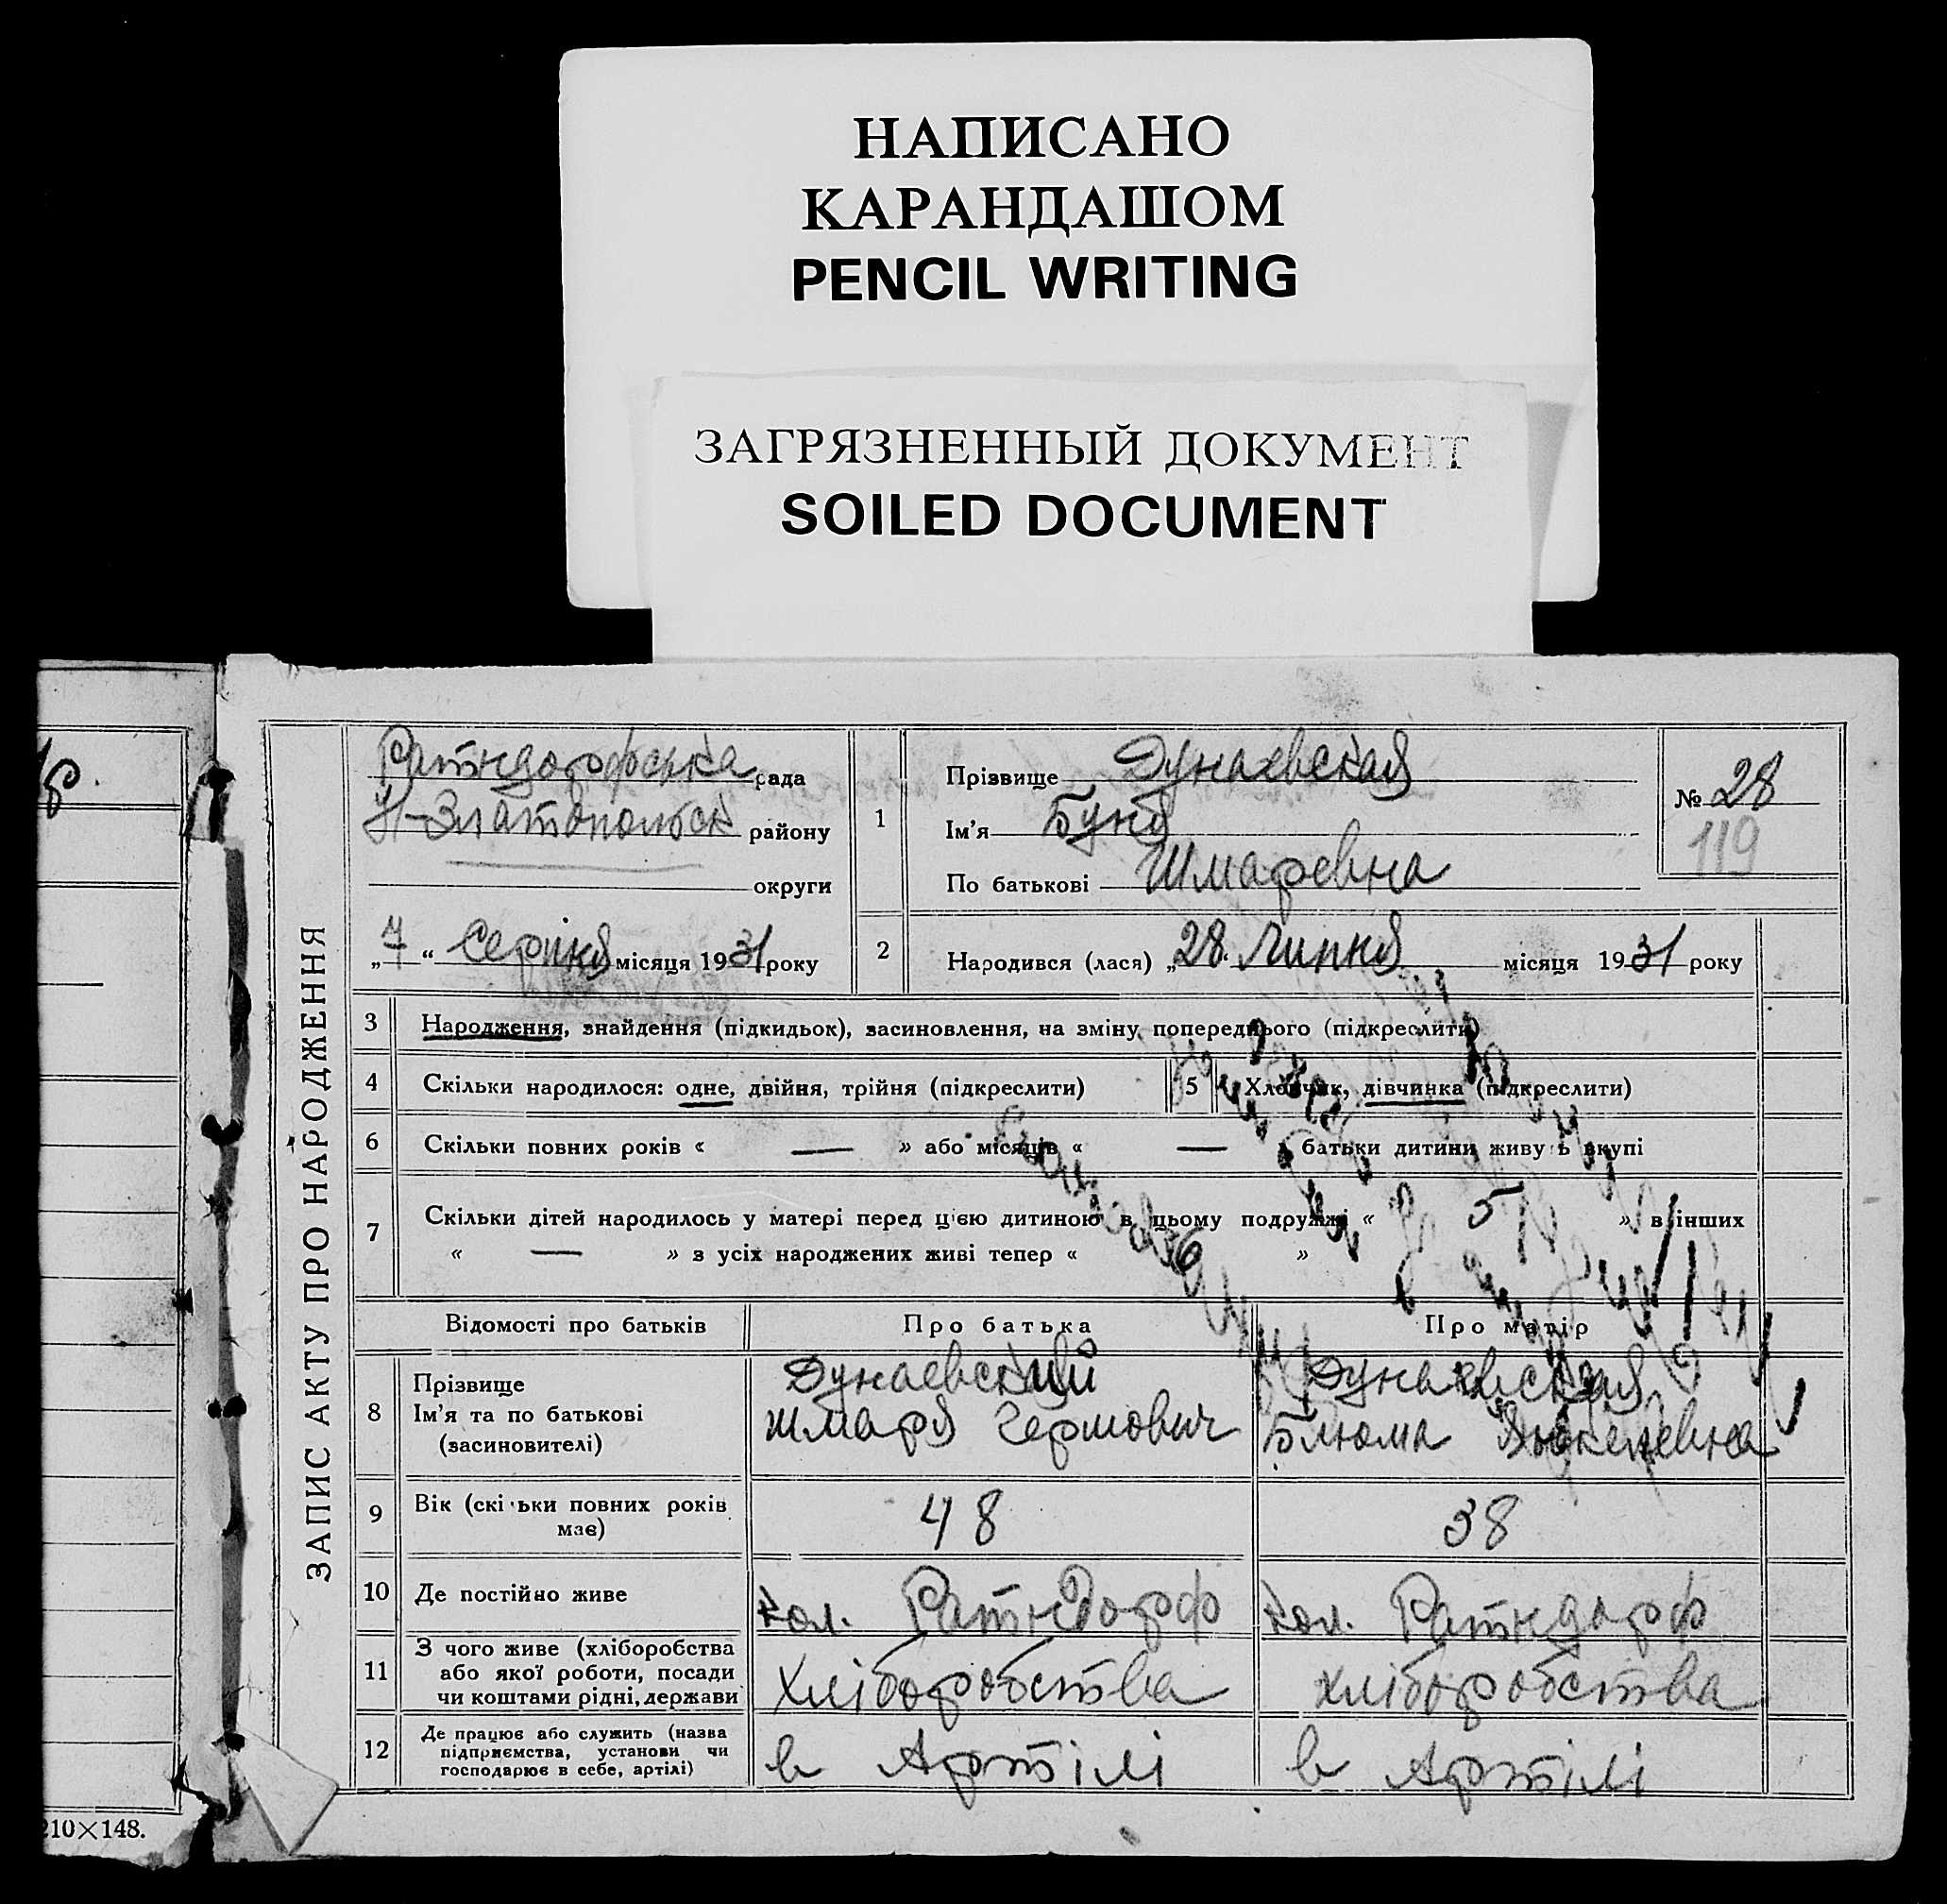 НАПИСАНО
КАРАНДАШОМ
PENCIL WRITING
ЗАГРЯЗНЕННЫЙ ДОКУМЕНТ
SOILED DOCUMENT
ЗАПИС АКТУ ПРО НАРОДЖЕННЯ
Ратндорфська рада
Н-Златопольск району
округи
„7“ Серпня місяця 1931 року
1
Прізвище Дунаевская
Ім'я Буня
По батькові Шмаревна
№ 28
119
2 Народився (лася) „28. Липня місяця 1931 року
3 Народження, знайдення (підкидьок), засиновлення, на зміну попереднього (підкреслити)
4 Скільки народилося: одне, двійня, трійня (підкреслити)
5 Хлопчик, дівчинка (підкреслити)
6 Скільки повних років « — » або місяців « — » батьки дитини живуть вкупі
7 Скільки дітей народилось у матері перед цією дитиною в цьому подружжі « 5 » в інших
« — » з усіх народжених живі тепер « »
Відомості про батьків Про батька Про матір
8 Прізвище
Ім'я та по батькові
(засиновителі)
Дунаевский
Шмаря Гершович
Дунаевская
Блюма
9 Вік (скільки повних років
має)
48 38
10 Де постійно живе кол. Ратндорф кол. Ратндорф
11 З чого живе (хліборобства
або якої роботи, посади
чи коштами рідні, держави
хліборобства хліборобства
12 Де працює або служить (назва
підприємства, установи чи
господарює в себе, артілі)
в Артілі в Артілі
210×148.